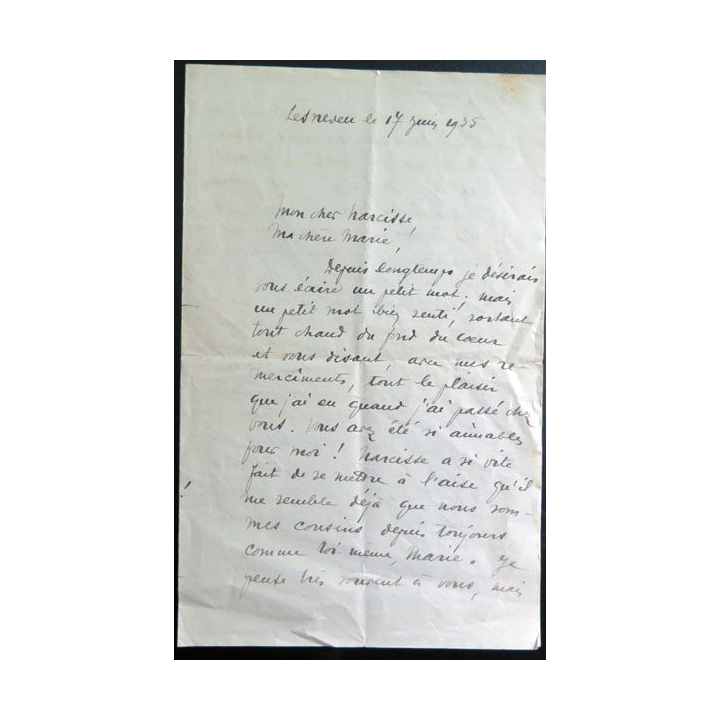 Lesneven le 17 juin 1935
Mon cher Narcisse,
Ma chère Marie,
Depuis longtemps je désirais
vous écrire un petit mot; mais
un petit mot bien senti, sortant
tout chaud du fond du cœur
et vous disant, avec mes re-
merciments, tout le plaisir
que j'ai eu quand j'ai passé chez
vous. Vous avez été si aimables
pour moi ! Narcisse a si vite
fait de se mettre à l'aise qu'il
me semble déjà que nous som-
mes cousins depuis toujours
comme toi même, Marie. Je
pense très souvent à vous, mais